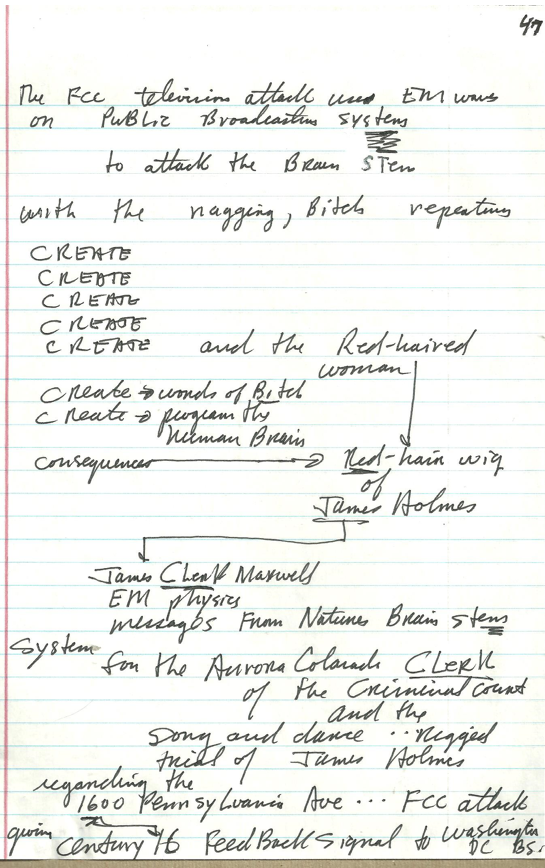 47
The FCC television attack uses EM waves
on Public Broadcasting systems
to attack the Brain STem
with the nagging, Bitch repeating
CREATE
CREATE
CREATE
CREATE
CREATE and the Red-haired
woman
Create → words of Bitch
Create → program the
human Brain
consequences → Red-hair wig
of
James Holmes
James Clerk Maxwell
EM physics
messages From Natures Brain stems
System for the Aurora Colorado CLerk
of the Criminal court
and the
song and dance .. rigged
trial of James Holmes
regarding the
1600 Pennsylvania Ave ... FCC attack
giving Century 16 FeedBack signal to Washington
DC BS.